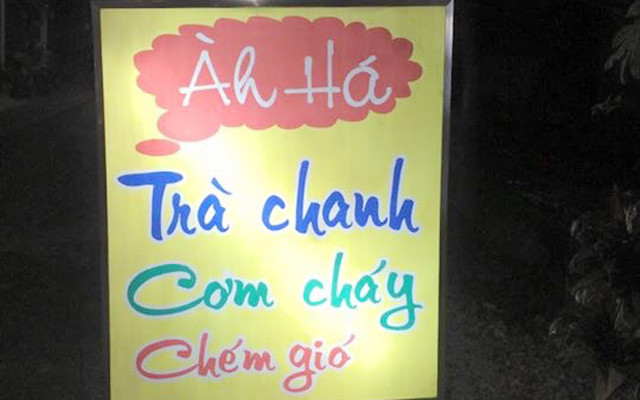 Àh Há
Trà chanh
Cơm cháy
Chém gió